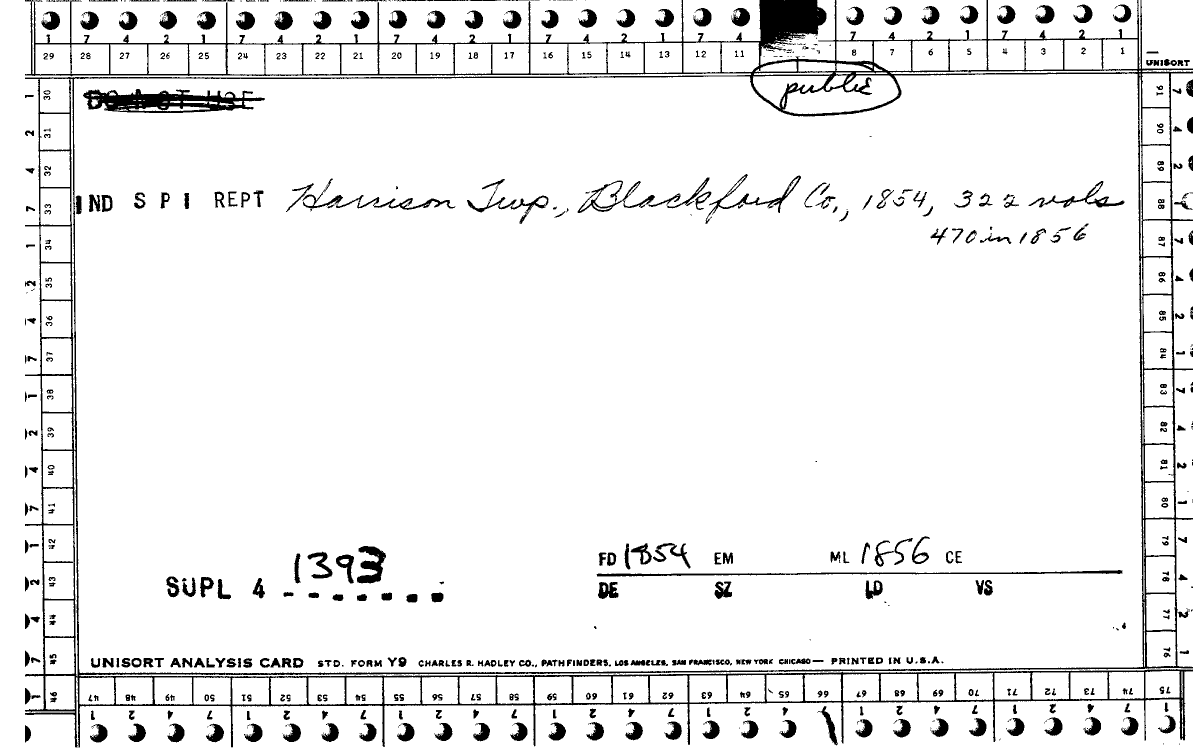 7 4 2 1 7 4 2 1 7 4 2 1 7 4 2 1 7 4 2 1 7 4 2 1 7 4 2 1
29 28 27 26 25 24 23 22 21 20 19 18 17 16 15 14 13 12 11 8 7 6 5 4 3 2 1
UNISORT
DO NOT USE
public
IND S P I REPT Harrison Twp., Blackford Co., 1854, 322 vols
470 in 1856
1393
SUPL 4
FD 1854 EM ML 1856 CE
DE SZ LD VS
UNISORT ANALYSIS CARD STD. FORM Y9 CHARLES R. HADLEY CO., PATHFINDERS, LOS ANGELES, SAN FRANCISCO, NEW YORK CHICAGO — PRINTED IN U.S.A.
30 31 32 33 34 35 36 37 38 39 40 41 42 43 44 45 46
47 48 49 50 51 52 53 54 55 56 57 58 59 60 61 62 63 64 65 66 67 68 69 70 71 72 73 74 75
91 90 89 88 87 86 85 84 83 82 81 80 79 78 77 76